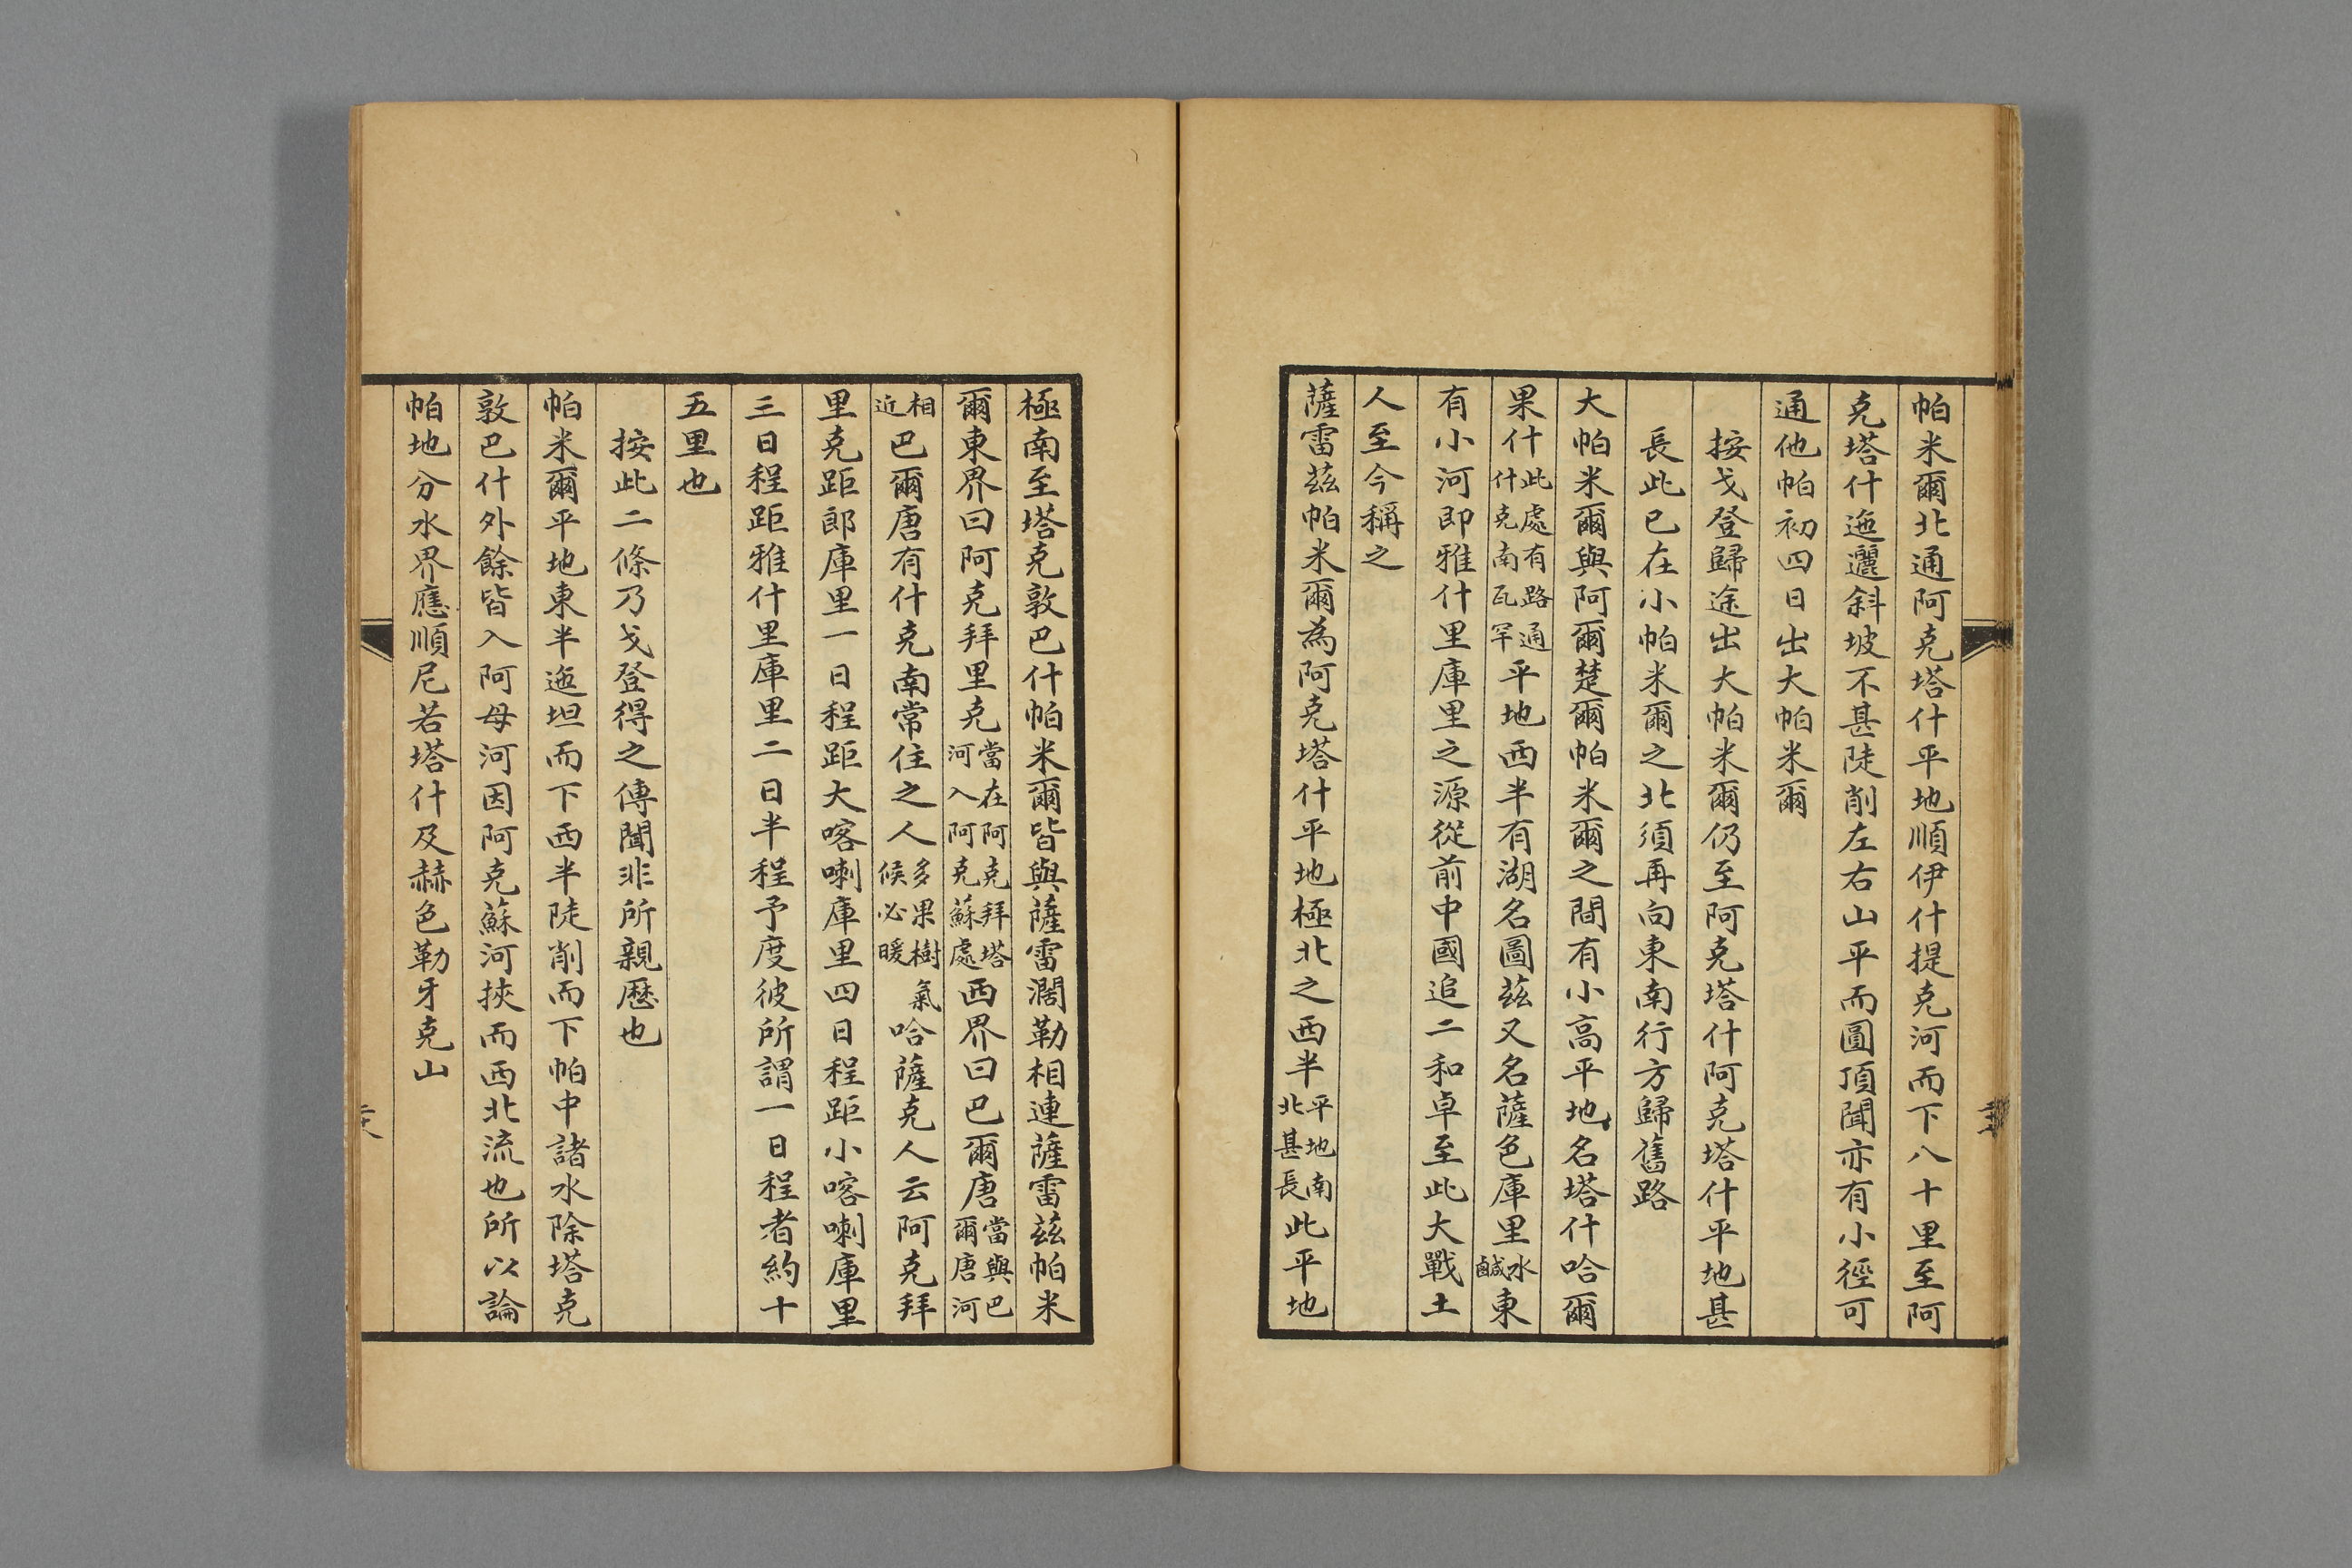 帕米爾北通阿克塔什平地順伊什提克河而下八十里至阿
克塔什迤邐斜坡不甚陡削左右山平而圓頂聞亦有小徑可
通他帕初四日出大帕米爾
按戈登歸途出大帕米爾仍至阿克塔什阿克塔什平地甚
長此已在小帕米爾之北須再向東南行方歸舊路
大帕米爾與阿爾楚爾帕米爾之間有小高平地名塔什哈爾
果什此處有路通什克南瓦罕平地西半有湖名圖茲又名薩色庫里水鹹東
有小河即雅什里庫里之源從前中國追二和卓至此大戰土
人至今稱之
薩雷茲帕米爾為阿克塔什平地極北之西半平地南北甚長此平地
極南至塔克敦巴什帕米爾皆與薩雷濶勒相連薩雷茲帕米
爾東界曰阿克拜里克當在阿克拜塔河入阿克蘇處西界曰巴爾唐當與巴爾唐河
相近巴爾唐有什克南常住之人多果樹氣候必暖哈薩克人云阿克拜
里克距郎庫里一日程距大喀喇庫里四日程距小喀喇庫里
三日程距雅什里庫里二日半程予度彼所謂一日程者約十
五里也
按此二條乃戈登得之傳聞非所親歷也
帕米爾平地東半迤坦而下西半陡削而下帕中諸水除塔克
敦巴什外餘皆入阿母河因阿克蘇河挾而西北流也所以論
帕地分水界應順尼若塔什及赫色勒牙克山